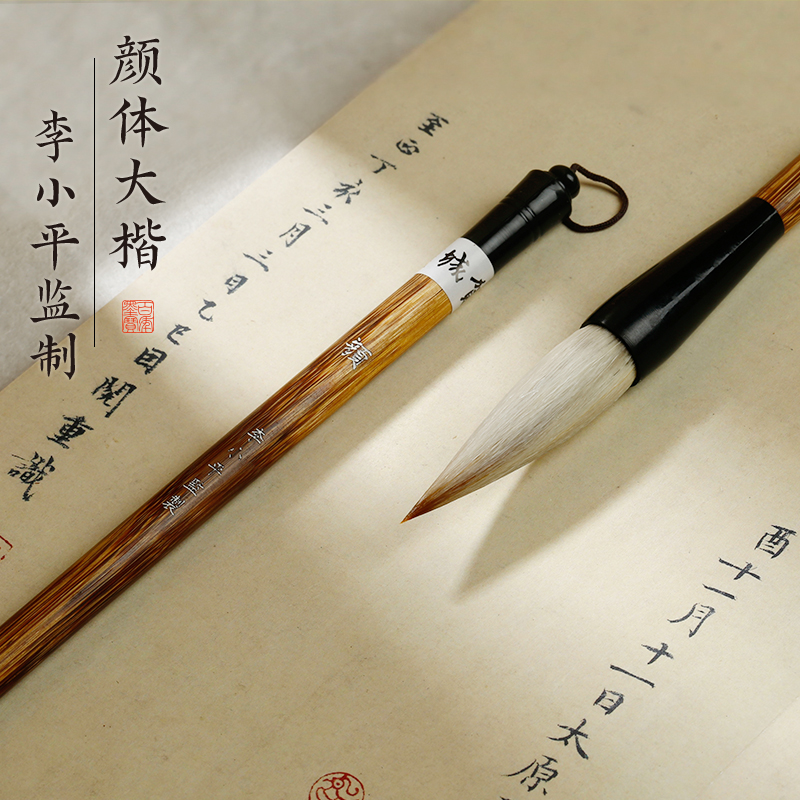 颜体大楷
李小平监制
至正丁亥三月三日乙巳日閱重識
顏
李小平監製
酉十一月十一日太原